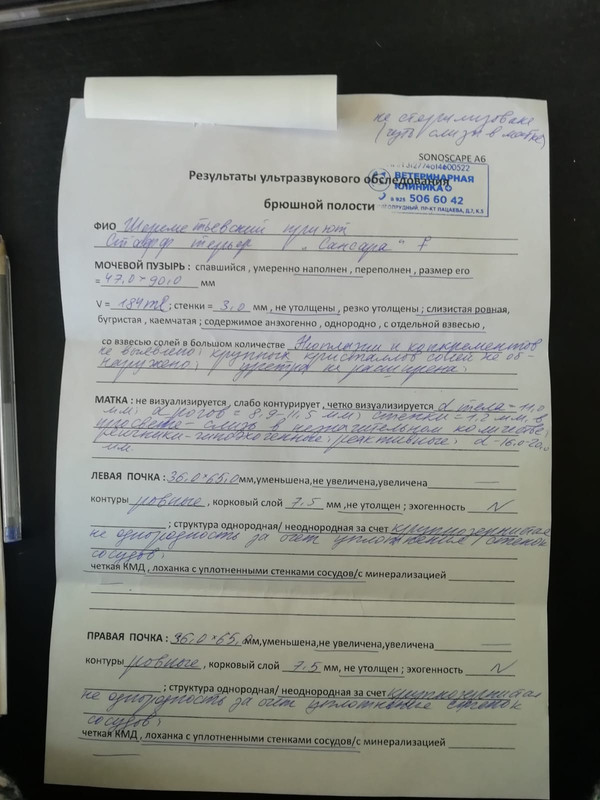 не стерилизована
(чуть слизи в матке)
SONOSCAPE A6
Результаты ультразвукового обследования
брюшной полости
ВЕТЕРИНАРНАЯ
КЛИНИКА
8 925 506 60 42
ПР-КТ ПАЦАЕВА, Д.7, К.3
ФИО Шереметьевский приют
Стафф терьер "Сансара" ♀
МОЧЕВОЙ ПУЗЫРЬ : спавшийся , умеренно наполнен , переполнен , размер его
= 47,0 × 90,0 мм
V = 184 ml ; стенки = 3,0 мм , не утолщены , резко утолщены ; слизистая ровная,
бугристая , каемчатая ; содержимое анэхогенно , однородно , с отдельной взвесью ,
со взвесью солей в большом количестве Неоплазии и конкрементов
не выявлено; крупных кристаллов солей не об-
наружено; уретра не расширена;
МАТКА : не визуализируется , слабо контурирует , четко визуализируется d тела = 11,0
мм; d рогов = 8,9-11,5 мм; стенки = 1,2 мм, в
просвете - слизь в незначительном количестве,
яичники - гипоэхогенные; реактивные; d - 16,0-20,0
мм.
ЛЕВАЯ ПОЧКА : 36,0 × 65,0 мм,уменьшена,не увеличена,увеличена
контуры ровные , корковый слой 7,5 мм ,не утолщен ; эхогенность N
; структура однородная/ неоднородная за счет крупнозернистая
не однородность за счет уплотнения стенок
сосудов;
четкая КМД , лоханка с уплотненными стенками сосудов/с минерализацией
ПРАВАЯ ПОЧКА : 36,0 × 65,0 мм,уменьшена,не увеличена,увеличена
контуры ровные , корковый слой 7,5 мм, не утолщен ; эхогенность N
; структура однородная/ неоднородная за счет крупнозернистая
не однородность за счет уплотнение стенок
сосудов;
четкая КМД , лоханка с уплотненными стенками сосудов/с минерализацией